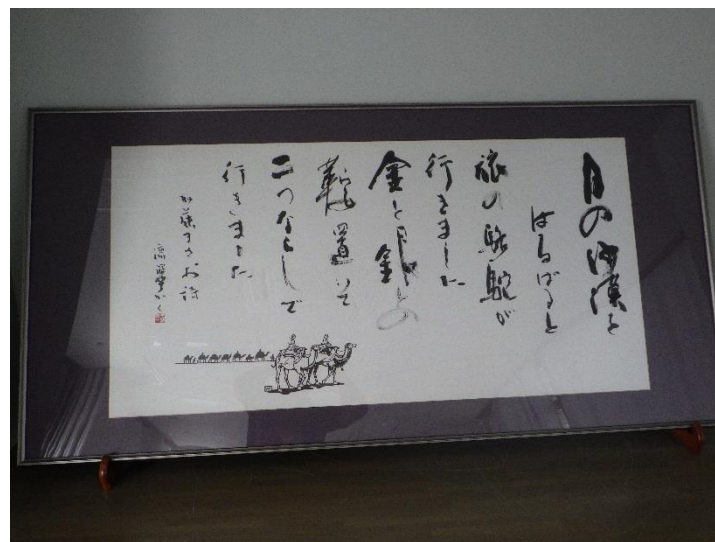 月の沙漠を
はるばると
旅の駱駝が
行きました
金と銀との
鞍置いて
二つならんで
行きました
加藤まさを詩